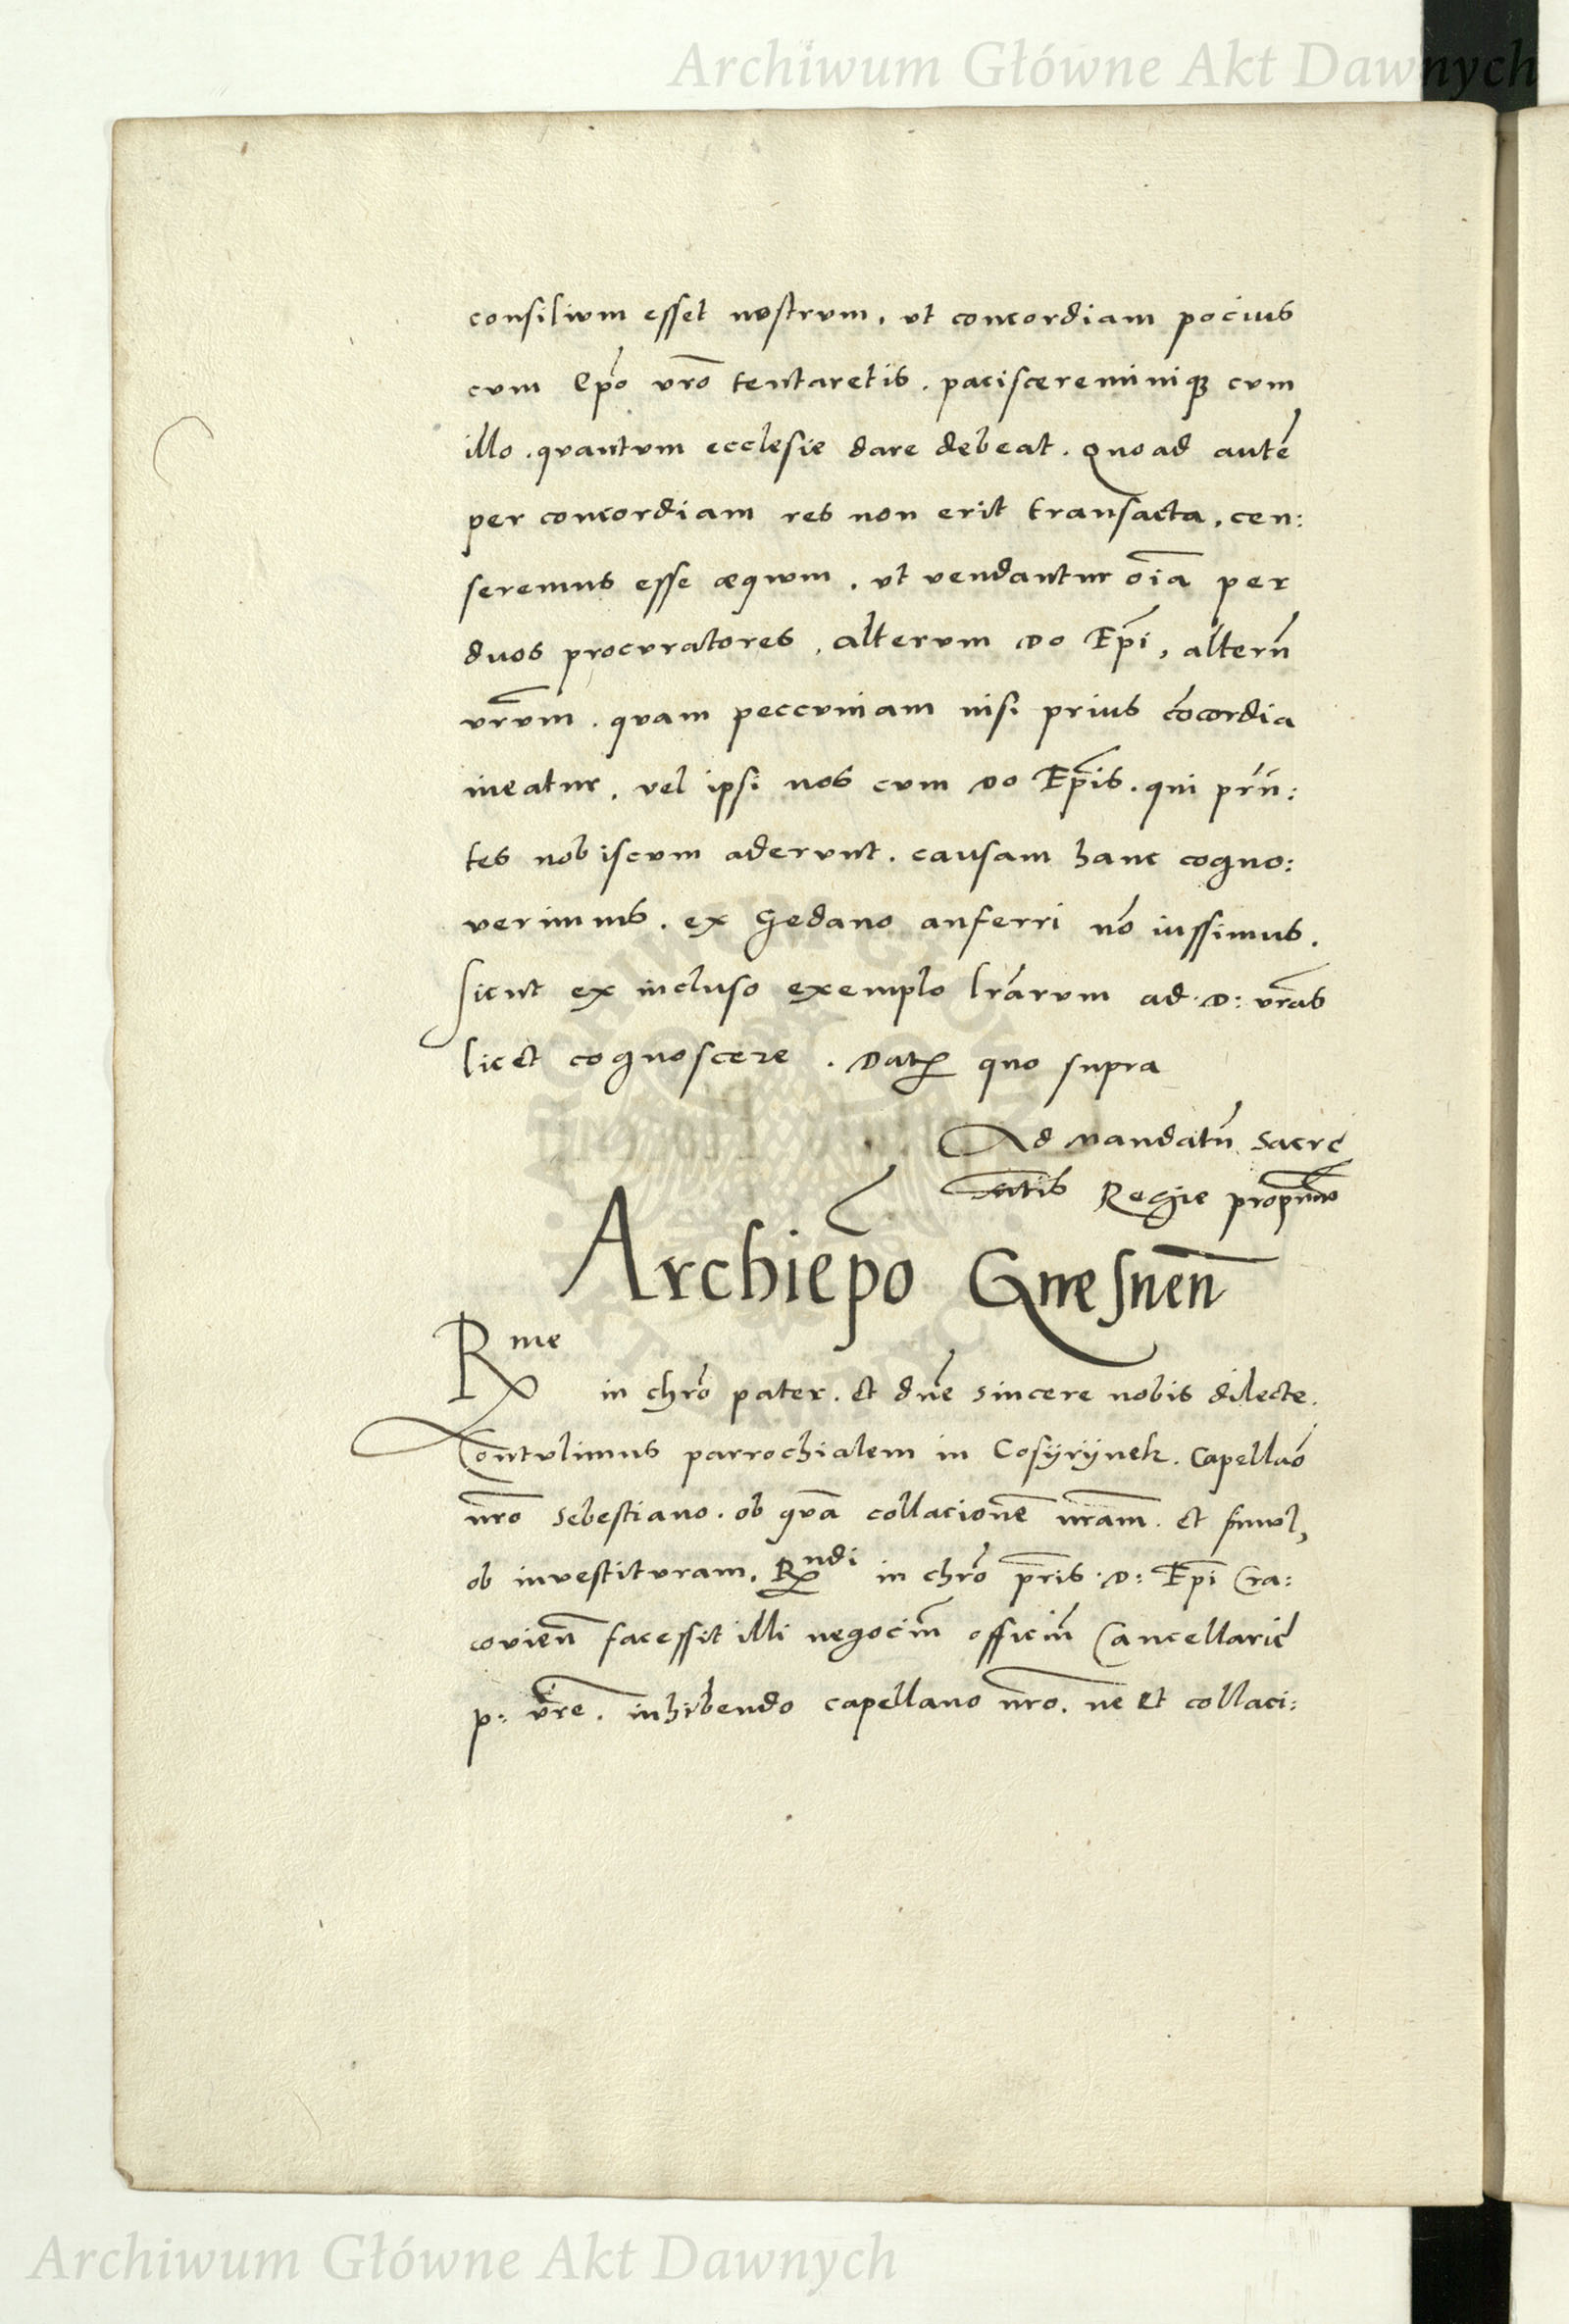 Archiwum Główne Akt Dawnych
consilium esset nostrum, ut concordiam pocius
cum Ep̄o vr̄o tentaretis. paciscereminiqꝫ cum
illo. quantum ecclesie dare debeat. Quoad autē
per concordiam res non erit transacta, cen:
seremus esse æquum, ut vendantur oīa per
duos procuratores, alterum Do Ep̄i, alterū
vr̄um. quam peccuniam nisi prius cōcordia
ineatur, vel ipsi nos cum Do Ep̄is. qui pr̄ñ:
tes nobiscum aderunt. causam hanc cogno:
verimus. ex Gedano auferri nō iussimus.
Sicut ex incluso exemplo lr̄arum ad. D: vr̄as
licet cognoscere. Datꝭ quo supra
Ad mandatū Sacre
Mtis Regie propriū
Archiep̄o Gnesnen̄
Rme
in chr̄o pater. et dn̄e sincere nobis dilecte.
Contulimus parrochialem in Cosÿrÿnek. Capellāo
nr̄o Sebestiano. ob quā collacionē nr̄am. et simul,
ob investituram. Rndi in chr̄o pr̄is. D: Ep̄i Cra:
covien̄ facessit illi negociū officiū Cancellarie
p: vr̄e. inhibendo capellano nr̄o. ne et collaci:
Archiwum Główne Akt Dawnych